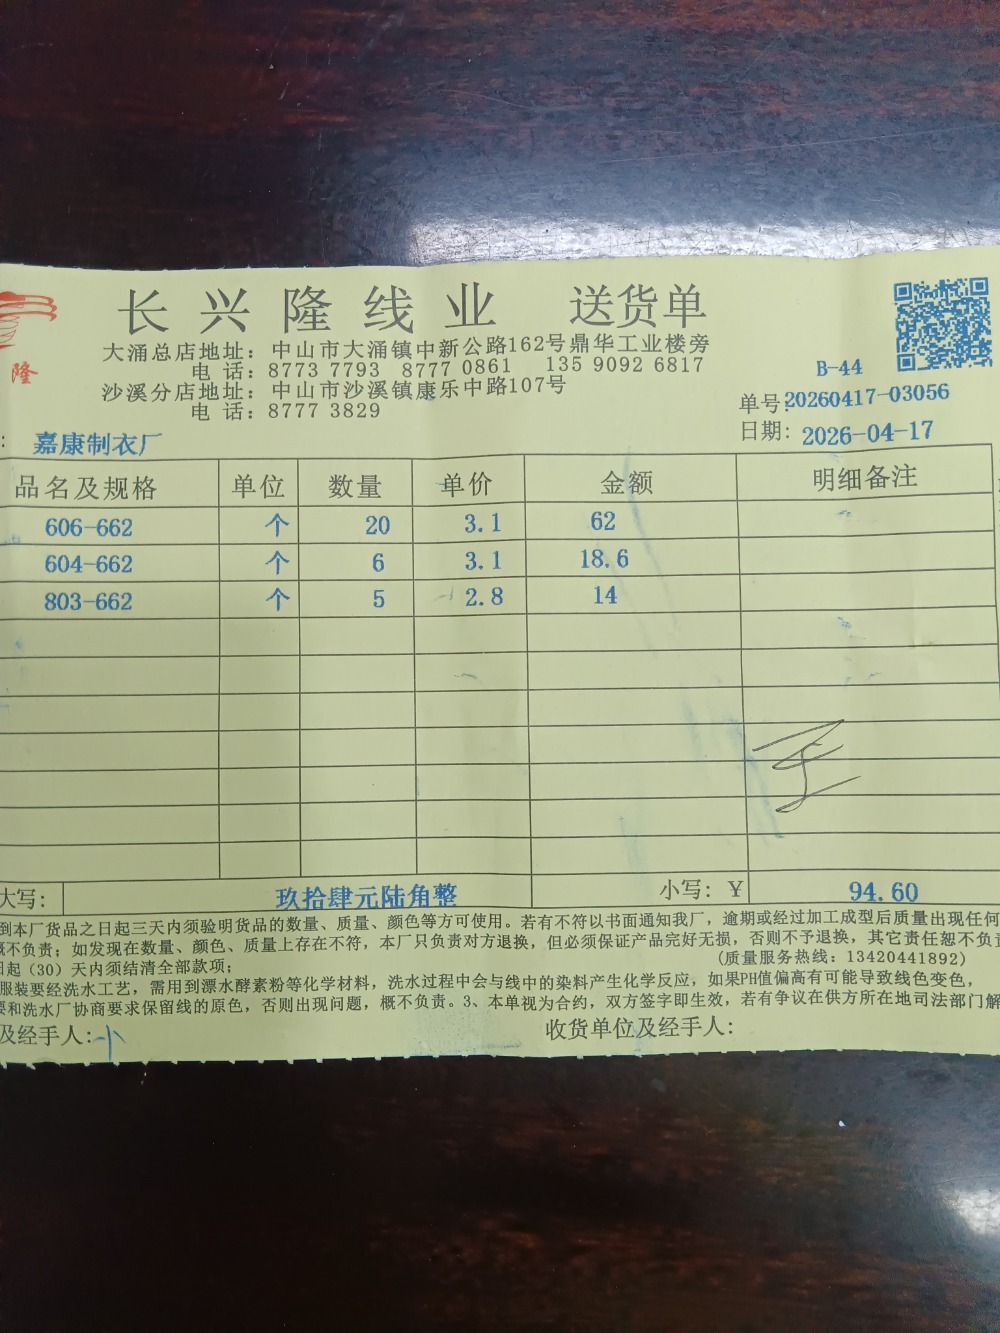 隆
长兴隆线业 送货单
大涌总店地址：中山市大涌镇中新公路162号鼎华工业楼旁
电 话：8773 7793 8777 0861 135 9092 6817
沙溪分店地址：中山市沙溪镇康乐中路107号
电 话：8777 3829
B-44
单号：20260417-03056
日期：2026-04-17
：嘉康制衣厂
品名及规格 单位 数量 单价 金额 明细备注
606-662 个 20 3.1 62
604-662 个 6 3.1 18.6
803-662 个 5 2.8 14
大写： 玖拾肆元陆角整 小写：￥ 94.60
到本厂货品之日起三天内须验明货品的数量、质量、颜色等方可使用。若有不符以书面通知我厂，逾期或经过加工成型后质量出现任何
概不负责；如发现在数量、颜色、质量上存在不符，本厂只负责对方退换，但必须保证产品完好无损，否则不予退换，其它责任恕不负责
日起（30）天内须结清全部款项；
（质量服务热线：13420441892）
服装要经洗水工艺，需用到漂水酵素粉等化学材料，洗水过程中会与线中的染料产生化学反应，如果PH值偏高有可能导致线色变色，
要和洗水厂协商要求保留线的原色，否则出现问题，概不负责。3、本单视为合约，双方签字即生效，若有争议在供方所在地司法部门解
及经手人：小 收货单位及经手人：